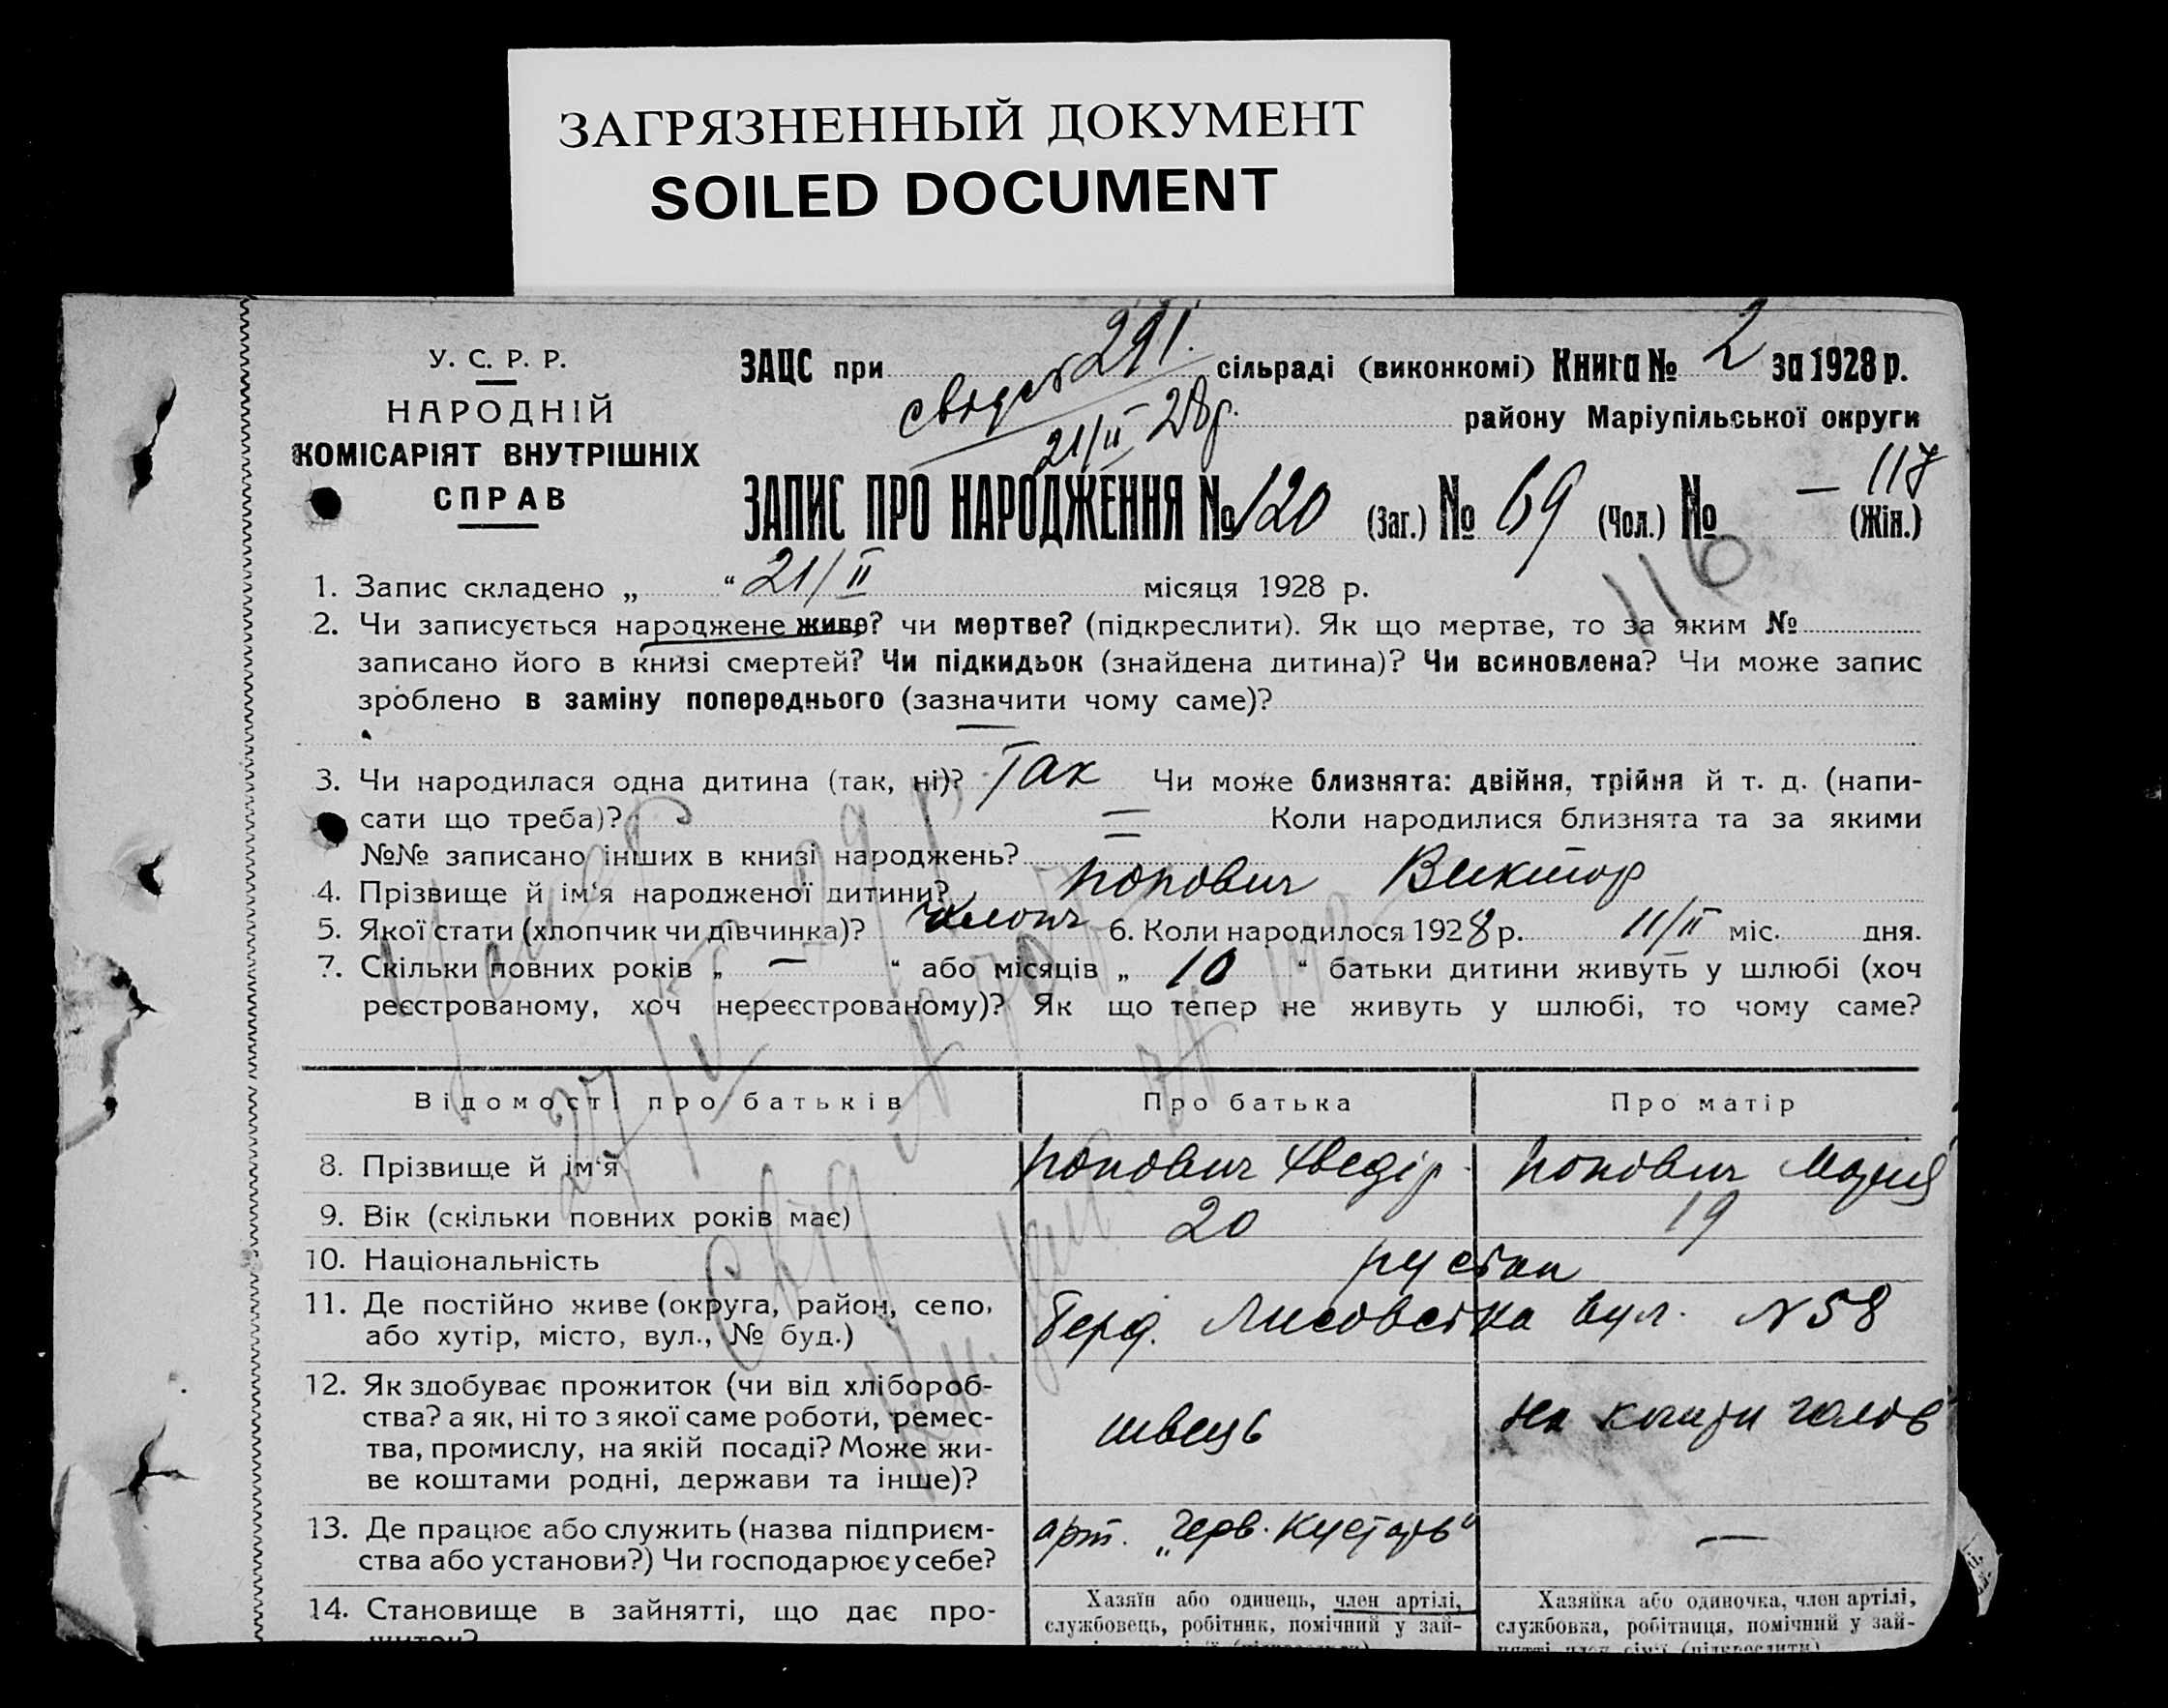 ЗАГРЯЗНЕННЫЙ ДОКУМЕНТ
SOILED DOCUMENT
У. С. Р. Р.
НАРОДНІЙ
КОМІСАРІЯТ ВНУТРІШНІХ
СПРАВ
ЗАЦС при 291. сільраді (виконкомі) Книга № 2 за 1928 р.
21/II 28р. району Маріупільської округи
117
ЗАПИС ПРО НАРОДЖЕННЯ № 120 (Заг.) № 69 (Чол.) № — (Жін.)
116
1. Запис складено „ “ 21/II місяця 1928 р.
2. Чи записується народжене живе? чи мертве? (підкреслити). Як що мертве, то за яким №
записано його в книзі смертей? Чи підкидьок (знайдена дитина)? Чи всиновлена? Чи може запис
зроблено в заміну попереднього (зазначити чому саме)?
—
3. Чи народилася одна дитина (так, ні)? Так Чи може близнята: двійня, трійня й т. д. (напи-
сати що треба)? — Коли народилися близнята та за якими
№№ записано інших в книзі народжень? —
4. Прізвище й ім‘я народженої дитини? Попович Виктор
5. Якої стати (хлопчик чи дівчинка)? хлопч 6. Коли народилося 1928 р. 11/II міс. дня.
7. Скільки повних років „ — “ або місяців „ 10 “ батьки дитини живуть у шлюбі (хоч
реєстрованому, хоч нереєстрованому)? Як що тепер не живуть у шлюбі, то чому саме?
Відомості про батьків Про батька Про матір
8. Прізвище й ім‘я Попович Хведір Попович Мария
9. Вік (скільки повних років має) 20 19
10. Національність
11. Де постійно живе (округа, район, село,
або хутір, місто, вул., № буд.) Берд. Лисовська вул. N 58
12. Як здобуває прожиток (чи від хлібороб-
ства? а як, ні то з якої саме роботи, ремес-
тва, промислу, на якій посаді? Може жи-
ве коштами родні, держави та інше)?
швець
на кошти
13. Де працює або служить (назва підприєм-
ства або установи?) Чи господарює у себе?
арт. „Черв. Кустарь“ —
14. Становище в зайнятті, що дає про-
житок?
Хазяїн або одинець, член артілі,
службовець, робітник, помічний у зай-
Хазяйка або одиночка, член артілі,
службовка, робітниця, помічний у зай-